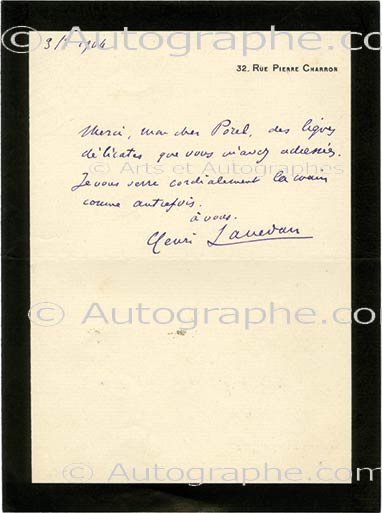 © Autographe.com
3/ 1904
32, Rue Pierre Charron
Merci, mon cher Porel, des lignes
délicates que vous m'avez adressées.
© Arts et Autographes
Je vous serre cordialement la main
comme autrefois.
à vous.
Henri Lavedan
© Autographe.com
© Autographe.com